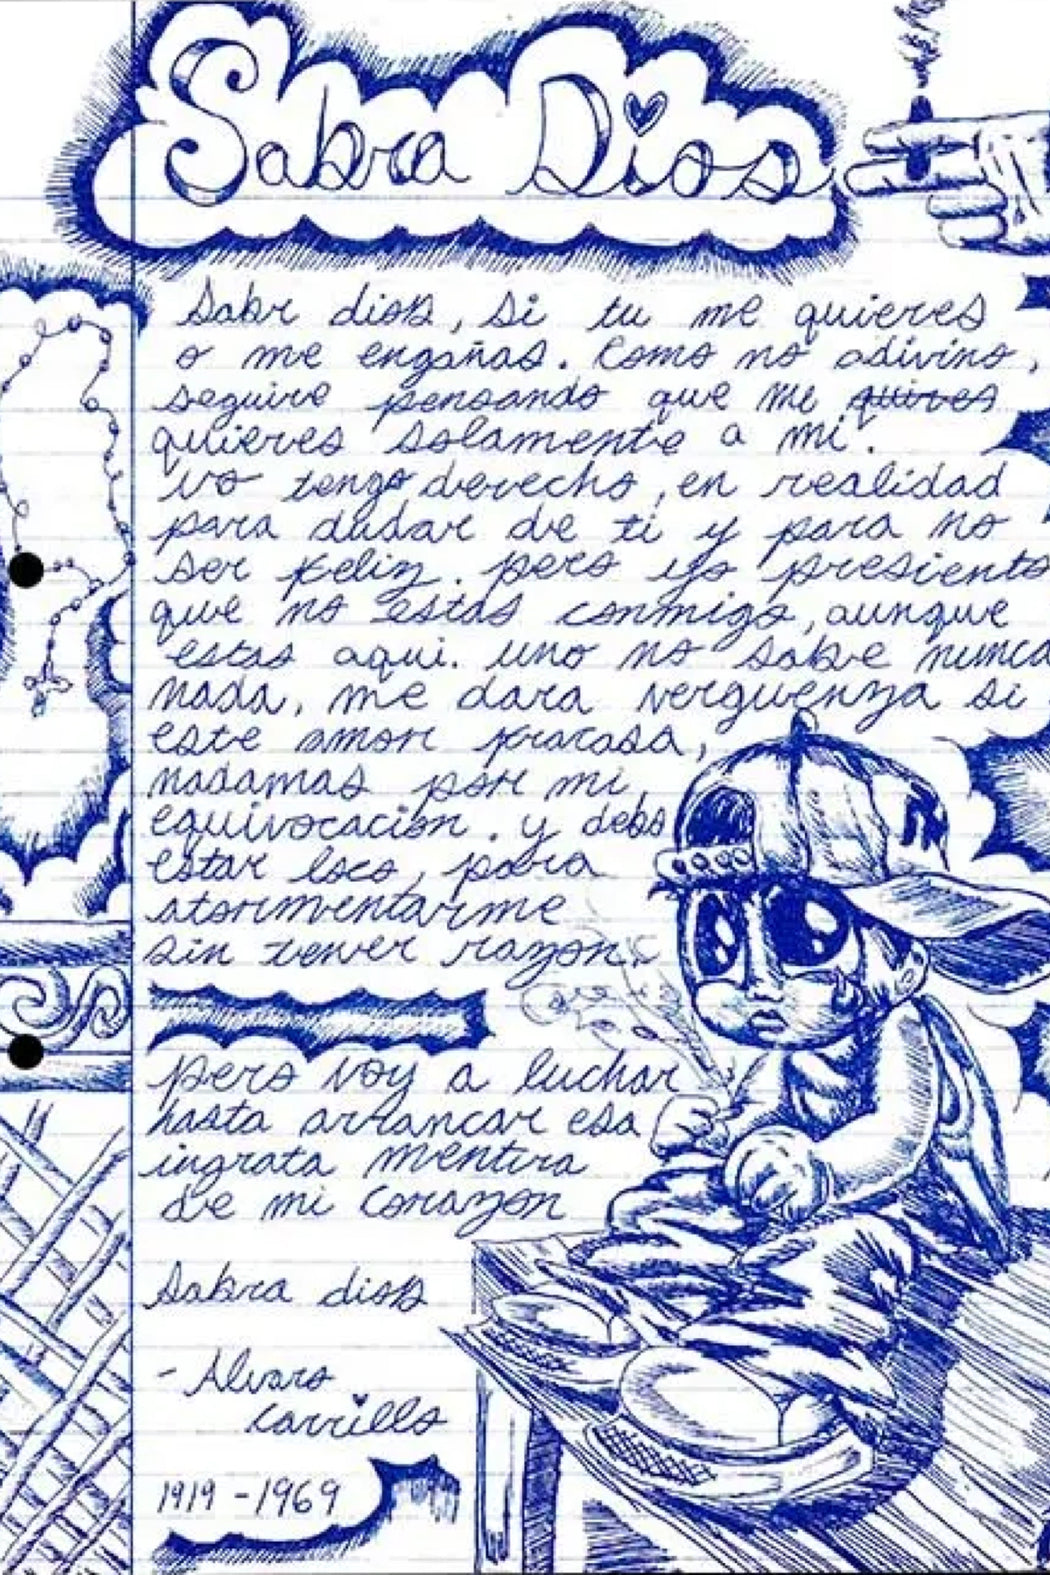 Sabra Dios
Sabr dios, si tu me quieres
o me engañas. Como no adivino,
seguire pensando que me quires
quieres solamente a mi.
no tengo derecho, en realidad
para dudar de ti y para no
ser feliz. pero yo presiento
que no estas conmigo, aunque
estas aqui. uno no sabe nunca
nada, me dara verguenza si
este amor fracasa,
nadamas por mi
equivocacion. y debo
estar loco, para
atormentarme
sin tener razon.
pero voy a luchar
hasta arrancar esa
ingrata mentira
de mi corazon
Sabra dios
- Alvaro
Carrillo
1919 - 1969